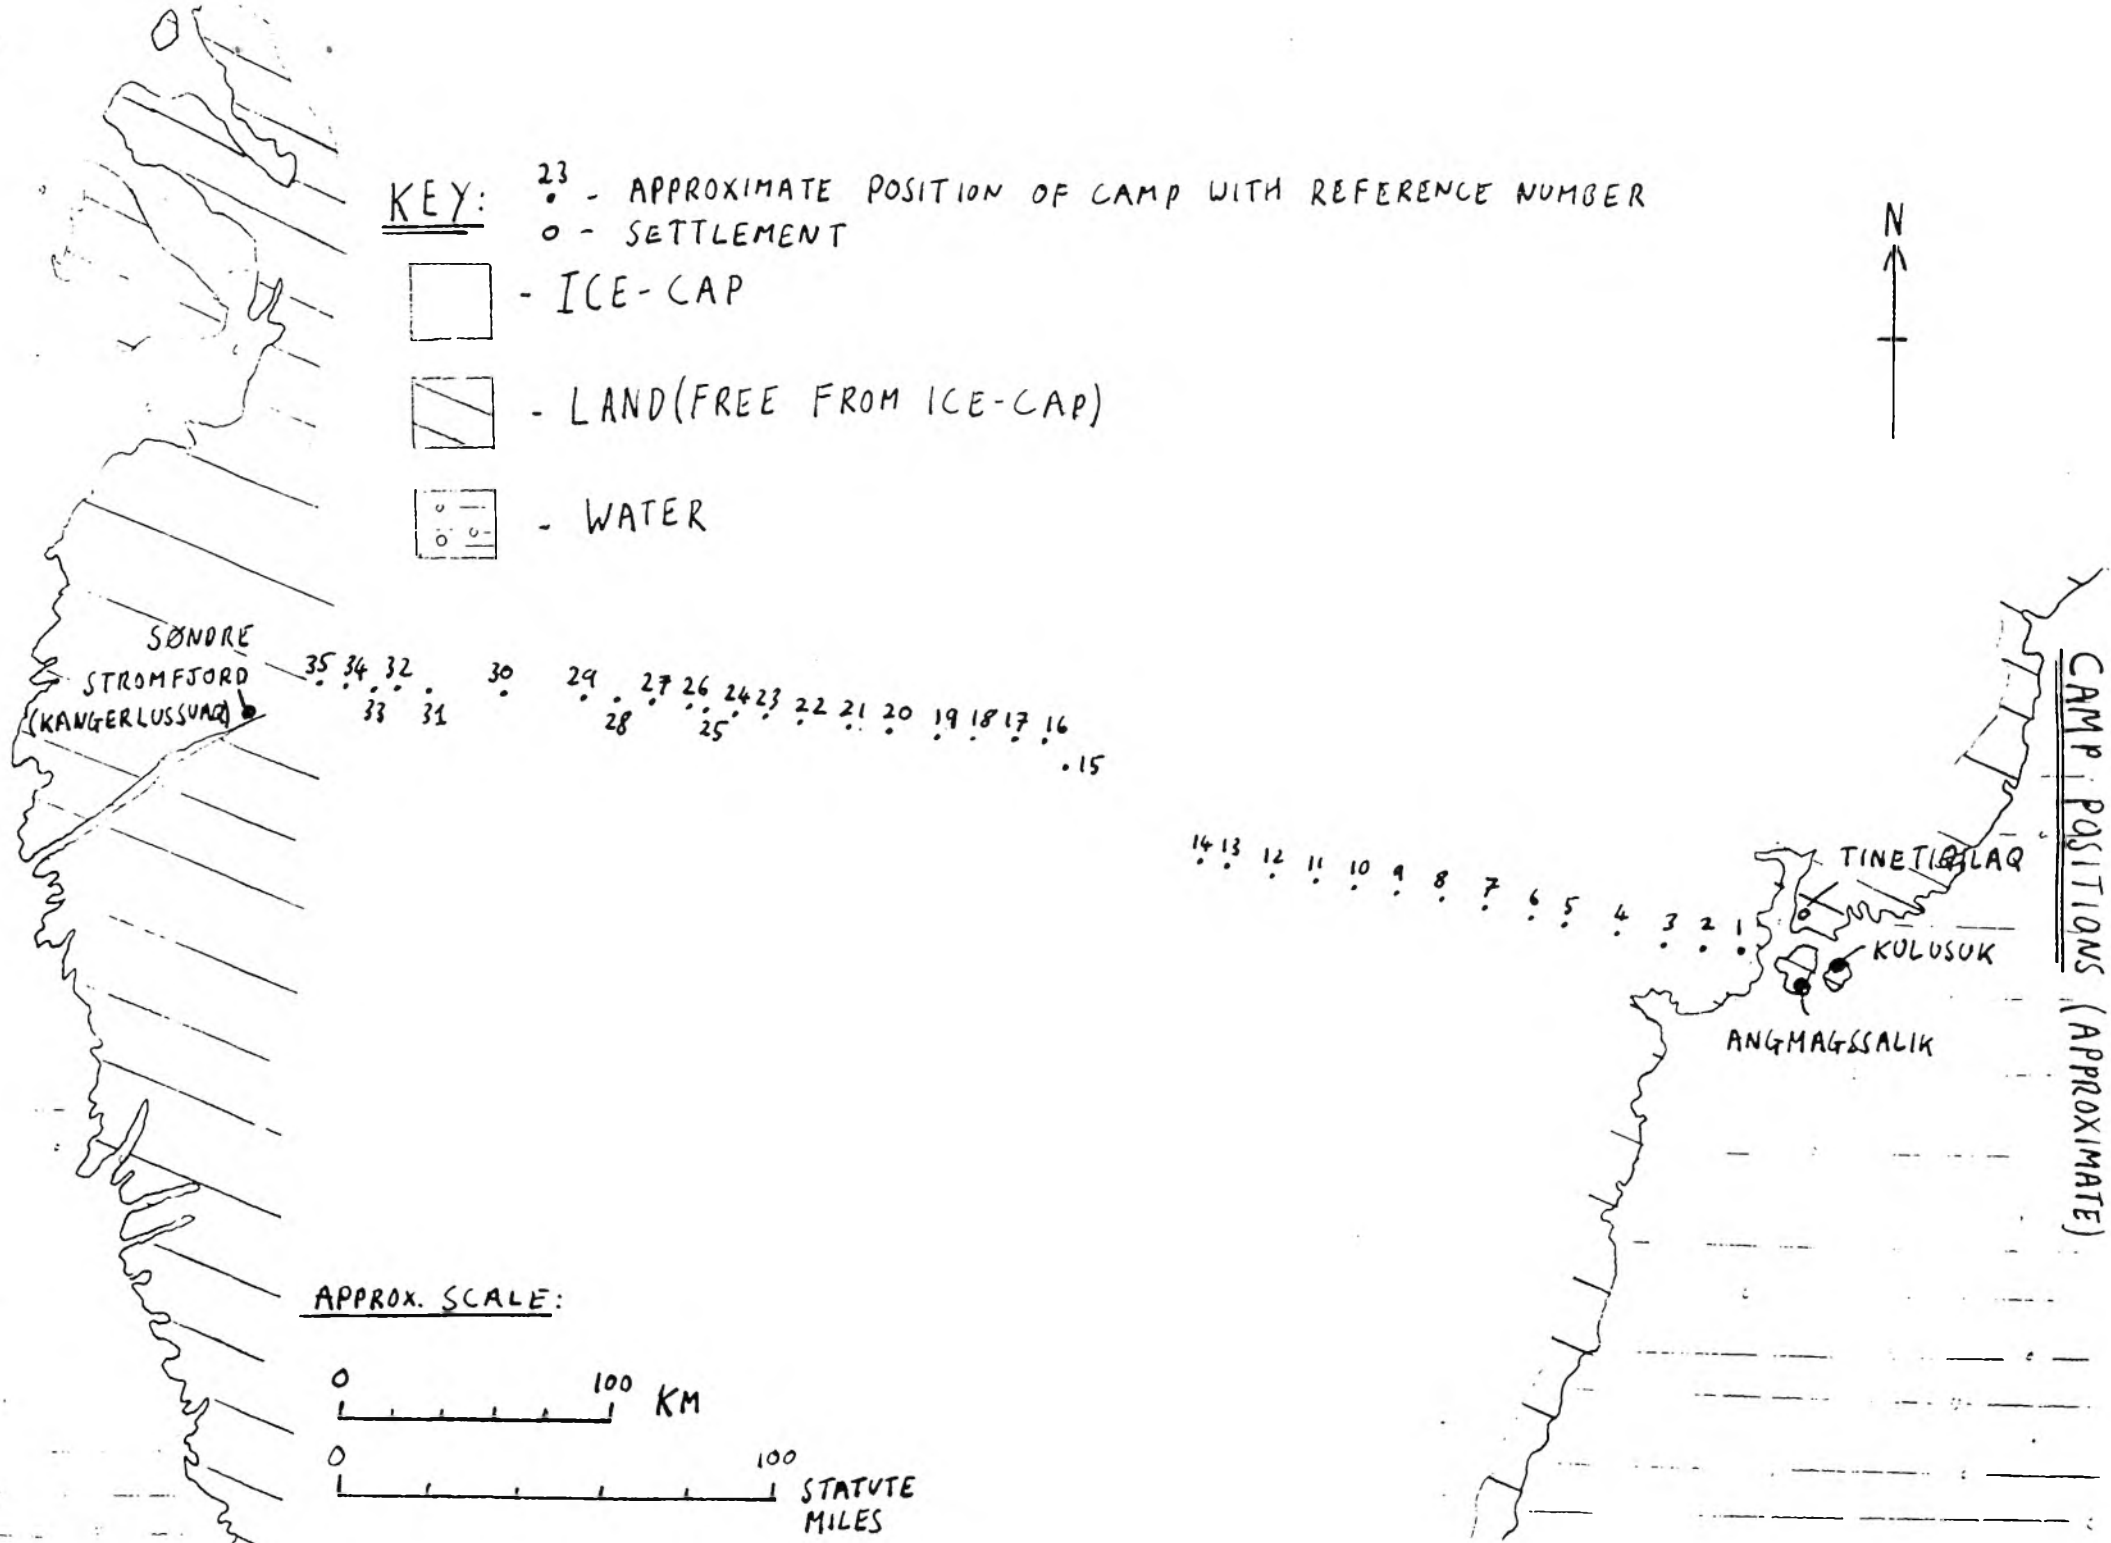 KEY:
23
- APPROXIMATE POSITION OF CAMP WITH REFERENCE NUMBER
- SETTLEMENT
- ICE-CAP
- LAND (FREE FROM ICE-CAP)
- WATER
N
SØNDRE
STROMFJORD
(KANGERLUSSUAQ)
35 34 32 30 29 27 26 24 23 22 21 20 19 18 17 16
33 31 28 25
15
14 13 12 11 10 9 8 7 6 5 4 3 2 1
TINETIQILAQ
KULUSUK
ANGMAGSSALIK
CAMP POSITIONS (APPROXIMATE)
APPROX. SCALE:
0 100 KM
0 100 STATUTE
MILES